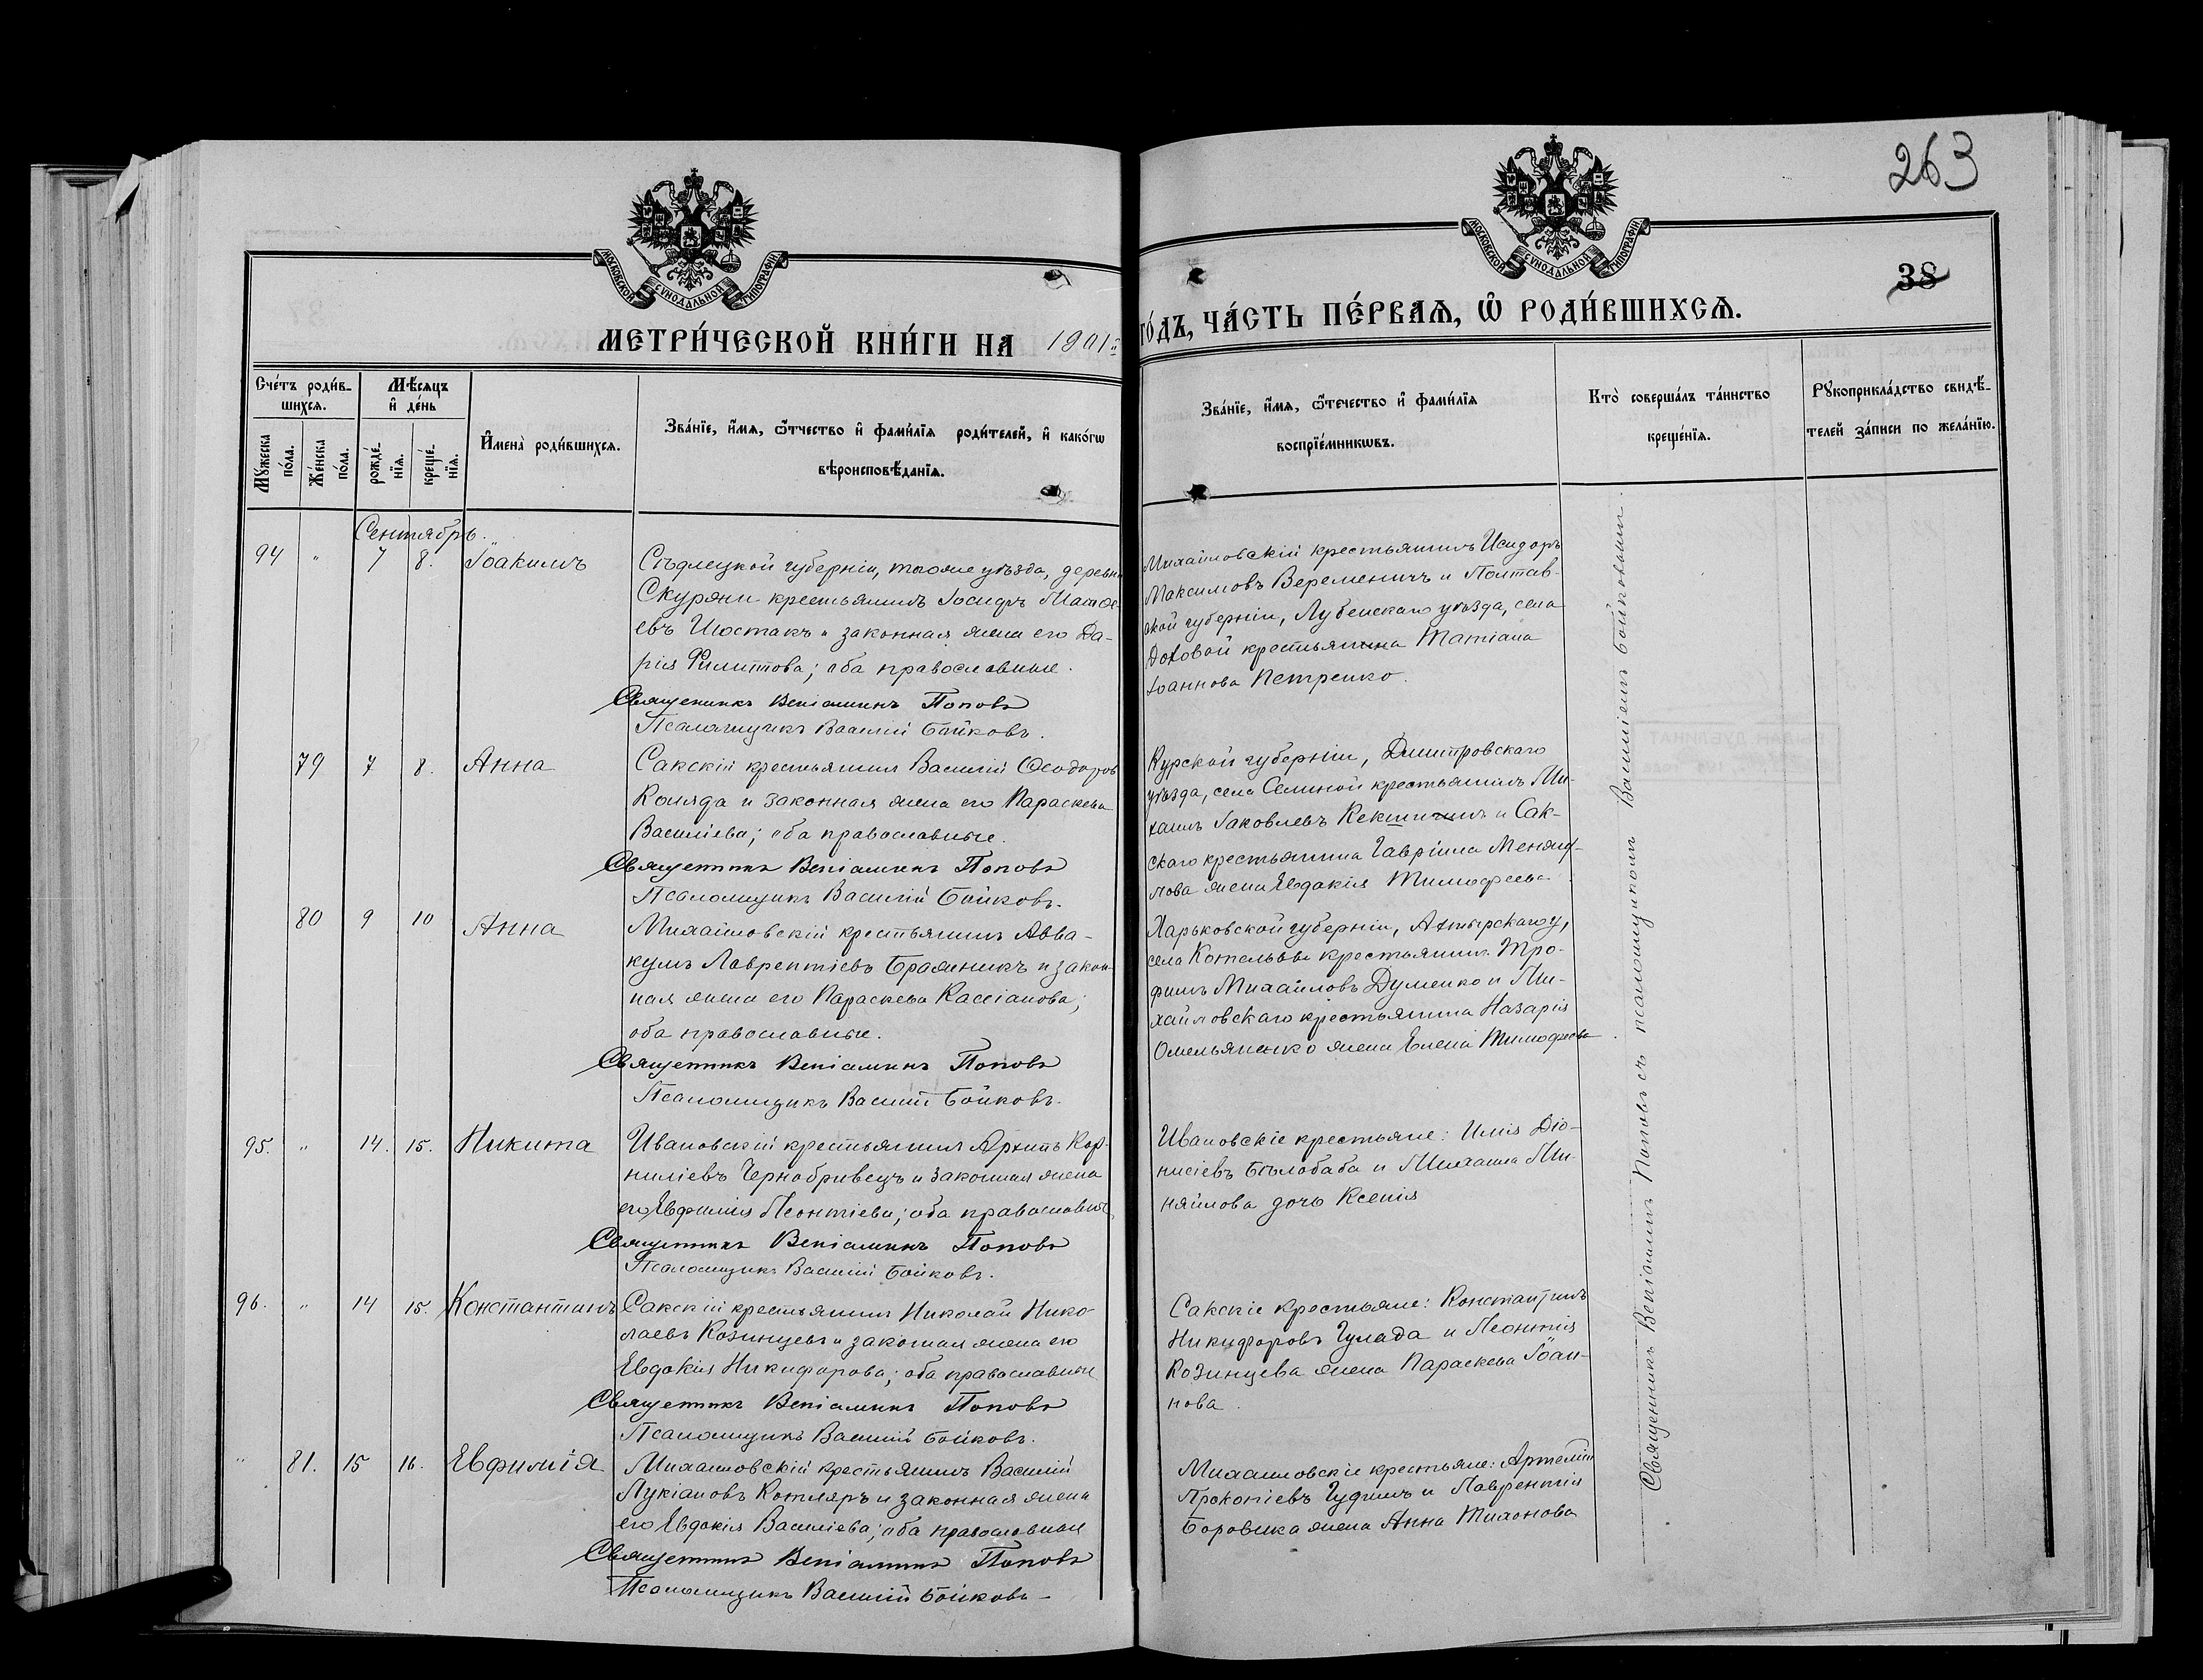 263
МОСКОВСКОЙ СѴНОДАЛЬНОЙ ТИПОГРАФІИ
МОСКОВСКОЙ СѴНОДАЛЬНОЙ ТИПОГРАФІИ
38
МЕТРИ́ЧЕСКОЙ КНИ́ГИ НА 1901й
ГО́ДЪ, ЧА́СТЬ ПЕ́РВАѦ, Ѡ҆ РОДИ́ВШИХСѦ.
Сче́тъ роди́в-
шихсѧ.
Мѣ́сѧцъ
и҆ де́нь
Мꙋ́жеска
по́ла.
Же́нска
по́ла.
рожде́-
нїѧ.
креще́-
нїѧ.
И҆мена̀ роди́вшихсѧ.
Зва́нїе, и҆́мѧ, ѻ҆́тчество и҆ фами́лїѧ роди́телей, и҆ како́гѡ
вѣроисповѣ́данїѧ.
Зва́нїе, и҆́мѧ, ѻ҆́течество и҆ фами́лїѧ
воспрїе́мникѡвъ.
Кто̀ соверша́лъ та́инство
креще́нїѧ.
Рꙋкоприкла́дство свидѣ́-
телей за́писи по жела́нїю.
Сентябрь.
94 " 7 8. Іоакимъ
Сѣдлецкой губерніи, того же уѣзда, деревни
Скуряни крестьянинъ Іосифъ Матѳе-
евъ Шостакъ и законная жена его Да-
рія Филиппова; оба православные.
Священникъ Веніаминъ Поповъ
Псаломщикъ Василій Бойковъ.
Михайловскій крестьянинъ Исидоръ
Максимовъ Веременичъ и Полтав-
ской губерніи, Лубенскаго уѣзда, села
крестьянина Татіана
Іоаннова Петренко.
79 7 8. Анна
Сакскій крестьянинъ Василій Ѳеодоровъ
Коляда и законная жена его Параскева
Василіева; оба православные.
Священникъ Веніаминъ Поповъ
Псаломщикъ Василій Бойковъ.
Курской губерніи, Дмитровскаго
уѣзда, села крестьянинъ Ми-
хаилъ Іаковлевъ и Сак-
скаго крестьянина Гавріила
жена Евдокія Тимофеева.
80 9 10 Анна
Михайловскій крестьянинъ Авва-
кумъ Лаврентіевъ Бражникъ и закон-
ная жена его Параскева Кассіанова;
оба православные.
Священникъ Веніаминъ Поповъ
Псаломщикъ Василій Бойковъ.
Харьковской губерніи, Ахтырскаго у,
села Котельвы крестьянинъ Тро-
фимъ Михайловъ Думенко и Ми-
хайловскаго крестьянина Назарія
Омельяненко жена Елена Тимофеева.
95. " 14. 15. Никита
Ивановскій крестьянинъ Архипъ Кор-
ниліевъ Чернобривецъ и законная жена
его Евфимія Леонтіева; оба православные
Священникъ Веніаминъ Поповъ
Псаломщикъ Василій Бойковъ.
Ивановскіе крестьяне: Илія Діо-
нисіевъ Бѣлобаба и Михаила Ми-
няйлова дочь Ксенія
96. " 14 15. Константинъ
Сакскій крестьянинъ Николай Нико-
лаевъ Козинцевъ и законная жена его
Евдокія Никифорова; оба православные
Священникъ Веніаминъ Поповъ
Псаломщикъ Василій Бойковъ.
Сакскіе крестьяне: Константинъ
Никифоровъ Гулада и Леонтія
Козинцева жена Параскева Іоан-
нова.
" 81. 15 16. Евфимія
Михайловскій крестьянинъ Василій
Лукіановъ Котляръ и законная жена
его Евдокія Василіева; оба православные
Священникъ Веніаминъ Поповъ
Псаломщикъ Василій Бойковъ
Михайловскіе крестьяне: Артемій
Прокопіевъ Гудимъ и Лаврентія
Боровика жена Анна Тихонова
Священникъ Веніаминъ Поповъ съ псаломщикомъ Василіемъ Бойковымъ.